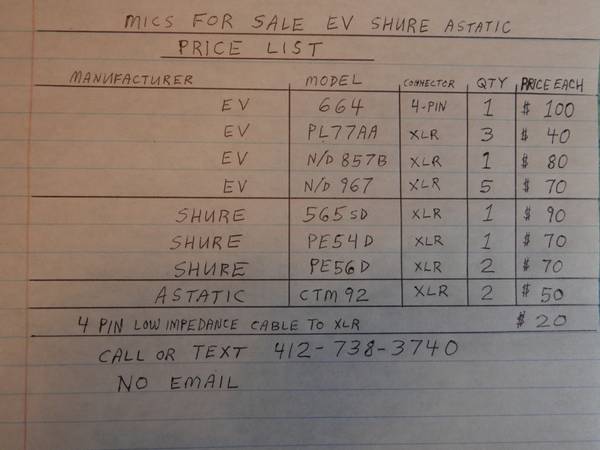 MICS FOR SALE EV SHURE ASTATIC
PRICE LIST
MANUFACTURER MODEL CONNECTOR QTY PRICE EACH
EV 664 4-PIN 1 $ 100
EV PL77AA XLR 3 $ 40
EV N/D 857B XLR 1 $ 80
EV N/D 967 XLR 5 $ 70
SHURE 565SD XLR 1 $ 90
SHURE PE54D XLR 1 $ 70
SHURE PE56D XLR 2 $ 70
ASTATIC CTM92 XLR 2 $ 50
4 PIN LOW IMPEDANCE CABLE TO XLR $ 20
CALL OR TEXT 412-738-3740
NO EMAIL